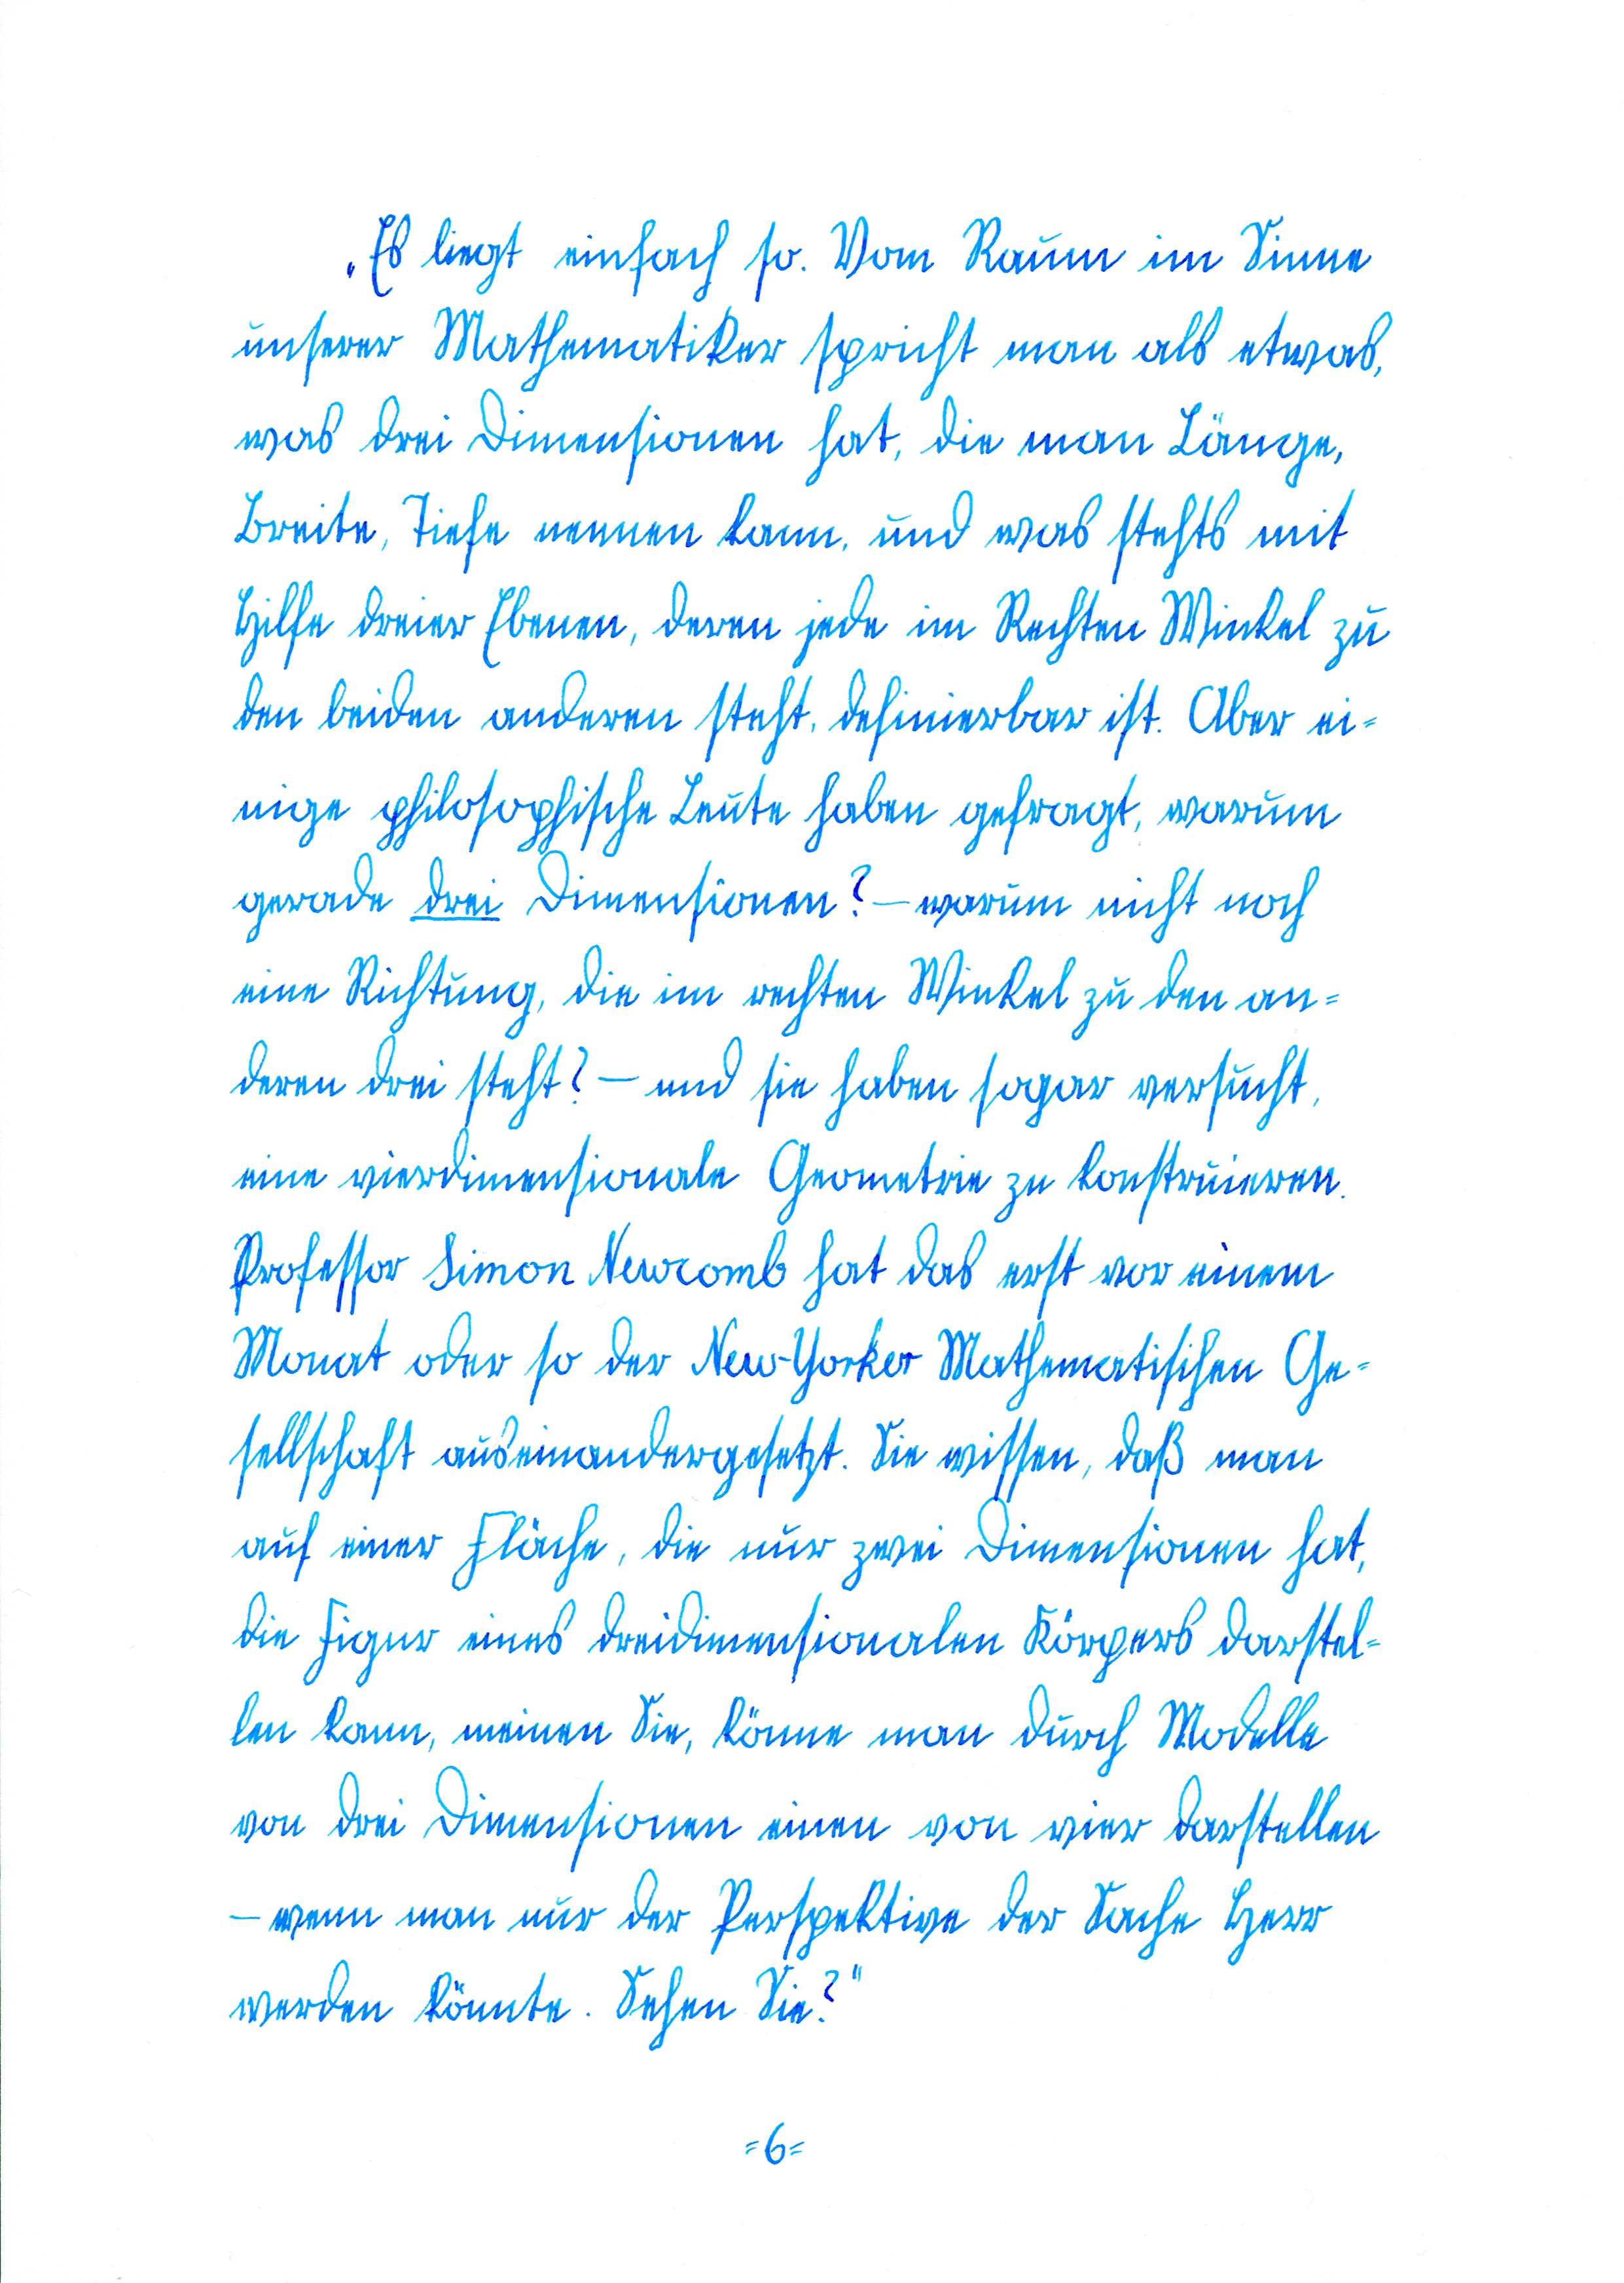 „Es liegt einfach so. Vom Raum im Sinne
unserer Mathematiker spricht man als etwas,
was drei Dimensionen hat, die man Länge,
Breite, Tiefe nennen kann, und was stehts mit
Hilfe dreier Ebenen, deren jede im Rechten Winkel zu
den beiden anderen steht, definierbar ist. Aber ei=
nige philosophische Leute haben gefragt, warum
gerade drei Dimensionen? — warum nicht noch
eine Richtung, die im rechten Winkel zu den an=
deren drei steht? — und sie haben sogar versucht,
eine vierdimensionale Geometrie zu konstruieren.
Professor Simon Newcomb hat das erst vor einem
Monat oder so der New-Yorker Mathematischen Ge=
sellschaft auseinandergesetzt. Sie wissen, daß man
auf einer Fläche, die nur zwei Dimensionen hat,
die Figur eines dreidimensionalen Körpers darstel=
len kann, meinen Sie, könne man durch Modelle
von drei Dimensionen einen von vier darstellen
— wenn man nur der Perspektive der Sache Herr
werden könnte. Sehen Sie?"
=6=